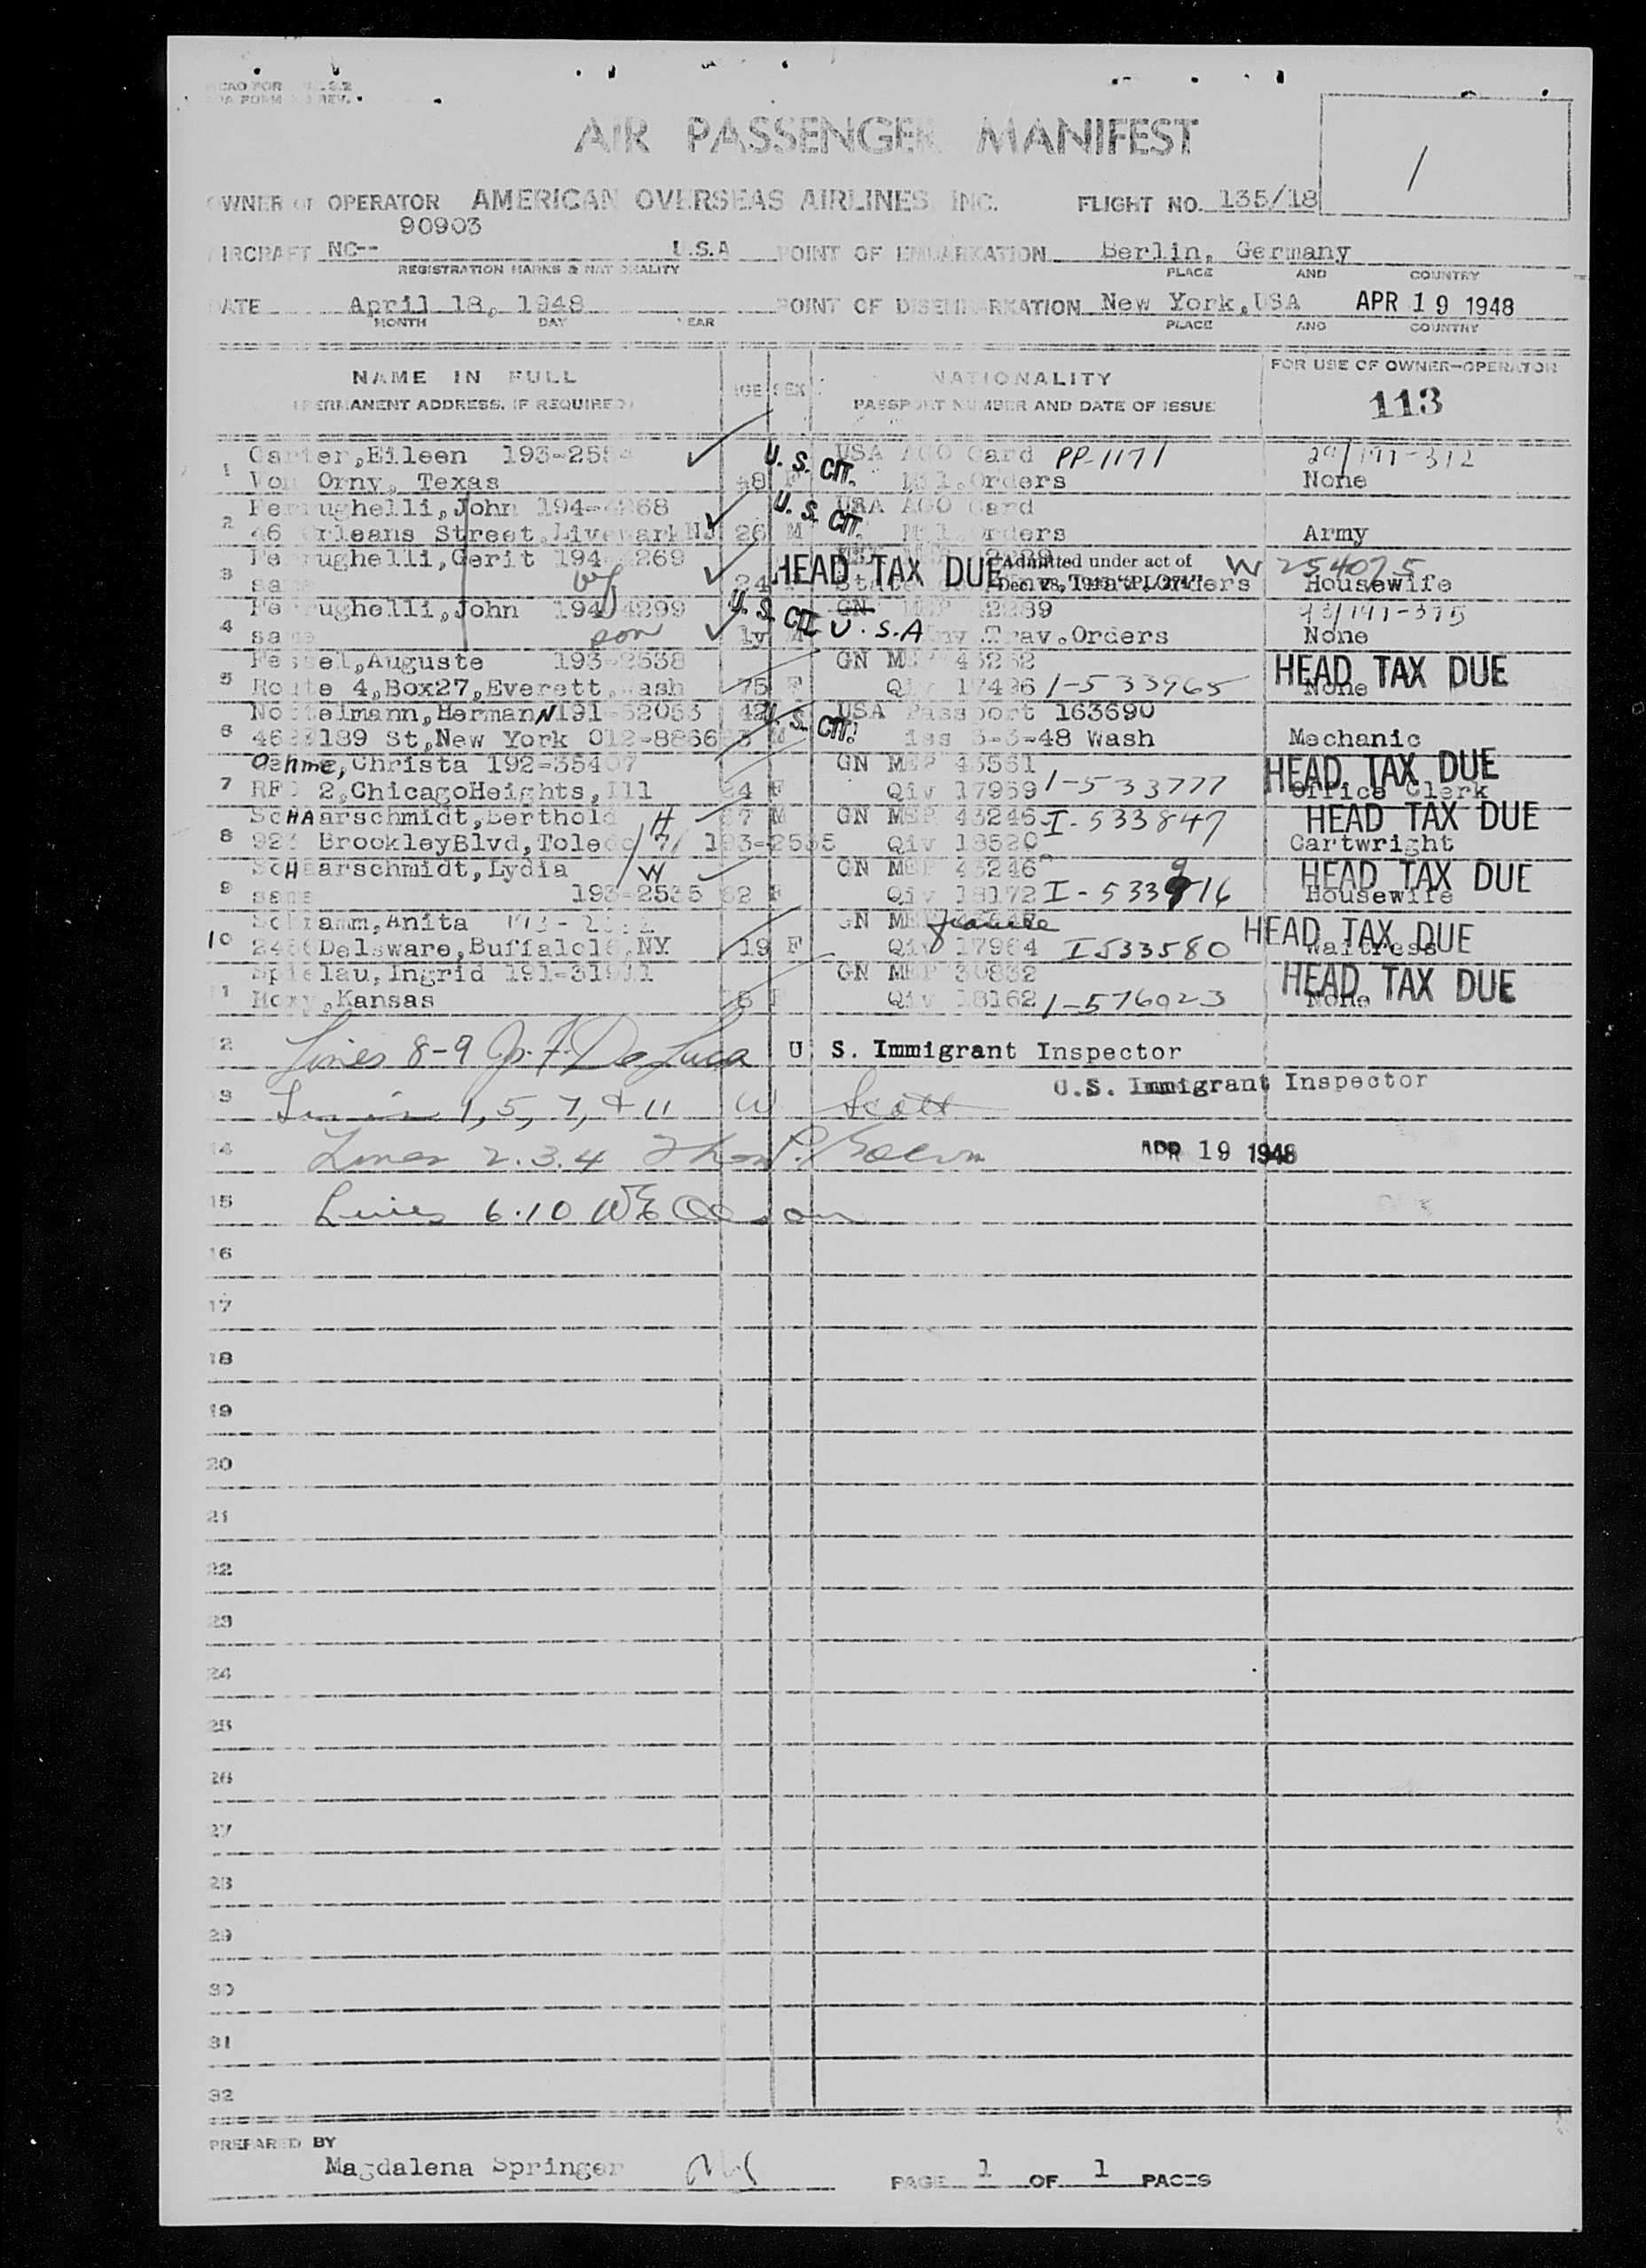 AIR PASSENGER MANIFEST
/
OWNER or OPERATOR AMERICAN OVERSEAS AIRLINES, INC. FLIGHT NO. 135/18
90903
AIRCRAFT NC-- U.S.A POINT OF EMBARKATION Berlin, Germany
REGISTRATION MARKS & NATIONALITY PLACE AND COUNTRY
DATE April 18, 1948 POINT OF DISEMBARKATION New York,USA APR 19 1948
MONTH DAY YEAR PLACE AND COUNTRY
NAME IN FULL AGE SEX NATIONALITY FOR USE OF OWNER-OPERATOR
(PERMANENT ADDRESS, IF REQUIRED) PASSPORT NUMBER AND DATE OF ISSUE 113
Carter,Eileen U. S. CIT. USA AGO Card PP-1171
1 Von Orny, Texas 48 F Mil.Orders None
Ferrughelli,John 194-4268 U. S. CIT. USA AGO Card
2 46 Orleans Street, NJ 26 M Mil.Orders Army
Ferrughelli,Gerit 194-4269 HEAD TAX DUE Admitted under act of W 254075
3 same 24 Housewife
Ferrughelli,John 194-4299 U. S. CIT. GN
4 same son 1y M U.S.A Trav.Orders None
Fessel,Auguste 193-2538 GN MEP HEAD TAX DUE
5 Route 4,Box27,Everett,Wash 75 F Qiv 17496 I-533965 None
Herman N 42 USA Passport 163690
6 189 St,New York U. S. CIT. iss 3-3-48 Wash Mechanic
Oehme,Christa 192-35407 GN MEP 43561 HEAD TAX DUE
7 RFD 2,ChicagoHeights,Ill 24 F Qiv 17959 I-533777 Office Clerk
ScHAarschmidt,Berthold H 67 M GN MEP 43246 I-533847 HEAD TAX DUE
8 BrockleyBlvd,Toledo 7/ 193-2535 Qiv 18520 Cartwright
ScHaarschmidt,Lydia W GN MEP 43246 HEAD TAX DUE
9 same 193-2535 62 F Qiv 18172 I-533916 Housewife
Schramm,Anita GN MEP HEAD TAX DUE
10 Delaware,Buffalo16,NY 19 F Qiv 17964 I533580 Waitress
Spielau,Ingrid 191-31911 GN MEP 30832 HEAD TAX DUE
11 Kansas F Qiv 18162 I-576023 None
12 Lines 8-9 Jos. F. DeLuca U. S. Immigrant Inspector
13 Lines 1, 5, 7, & 11 W Scott U.S. Immigrant Inspector
14 Lines 2.3.4 APR 19 1948
15 Lines 6.10
16
17
18
19
20
21
22
23
24
25
26
27
28
29
30
31
32
PREPARED BY
Magdalena Springer PAGE 1 OF 1 PAGES